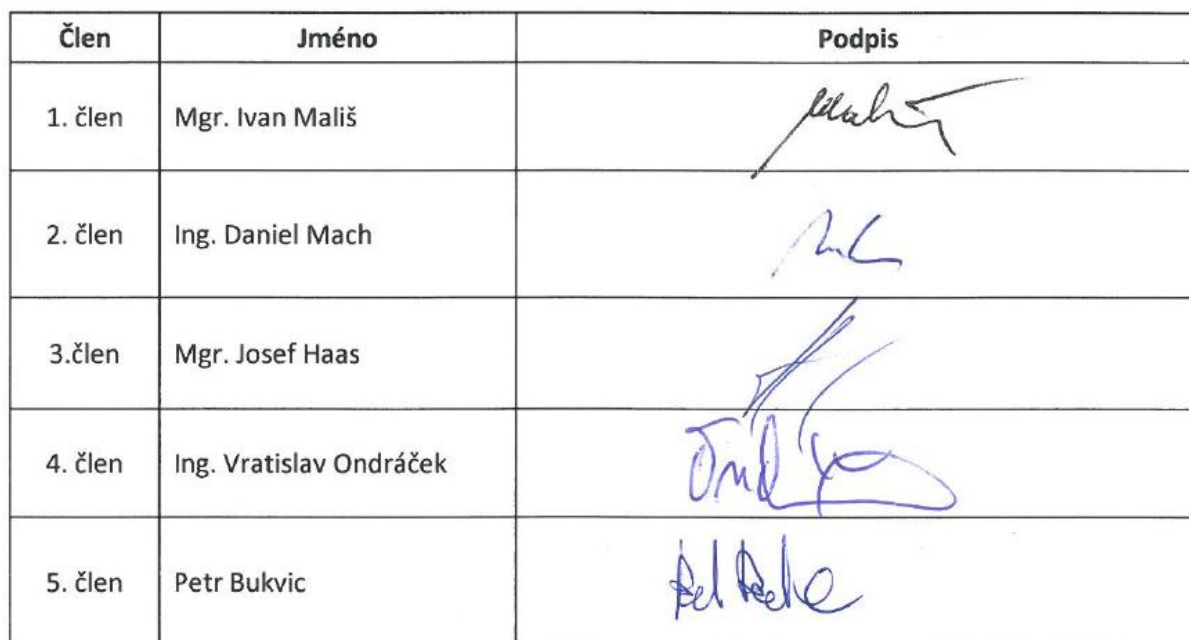 Člen Jméno Podpis
1. člen Mgr. Ivan Mališ
2. člen Ing. Daniel Mach
3.člen Mgr. Josef Haas
4. člen Ing. Vratislav Ondráček
5. člen Petr Bukvic